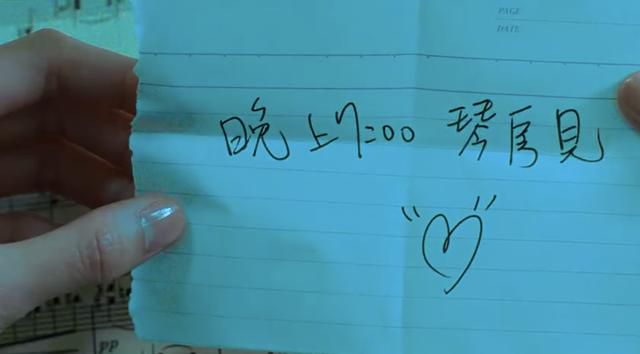 PAGE
DATE
晚上7:00 琴房見
pp